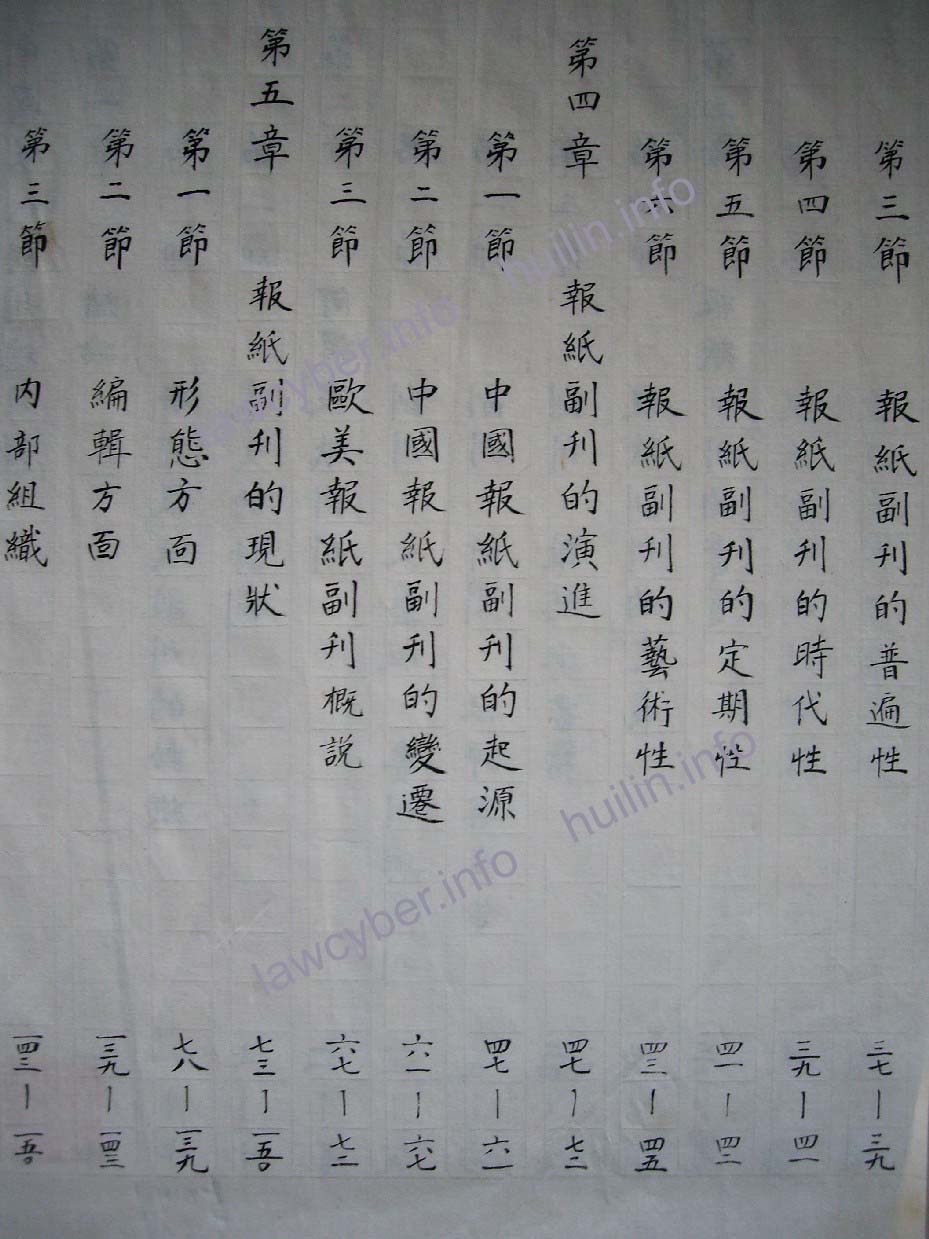 第三節 報紙副刊的普遍性 三七—三九
第四節 報紙副刊的時代性 三九—四一
第五節 報紙副刊的定期性 四一—四二
第六節 報紙副刊的藝術性 四三—四五
第四章 報紙副刊的演進 四七—七二
第一節 中國報紙副刊的起源 四七—六一
第二節 中國報紙副刊的變遷 六一—六七
第三節 歐美報紙副刊概説 六七—七二
第五章 報紙副刊的現狀 七三—一五〇
第一節 形態方面 七八—一三九
第二節 編輯方面 一三九—一四三
第三節 内部組織 一四三—一五〇
lawcyber.info huilin.info
lawcyber.info huilin.info